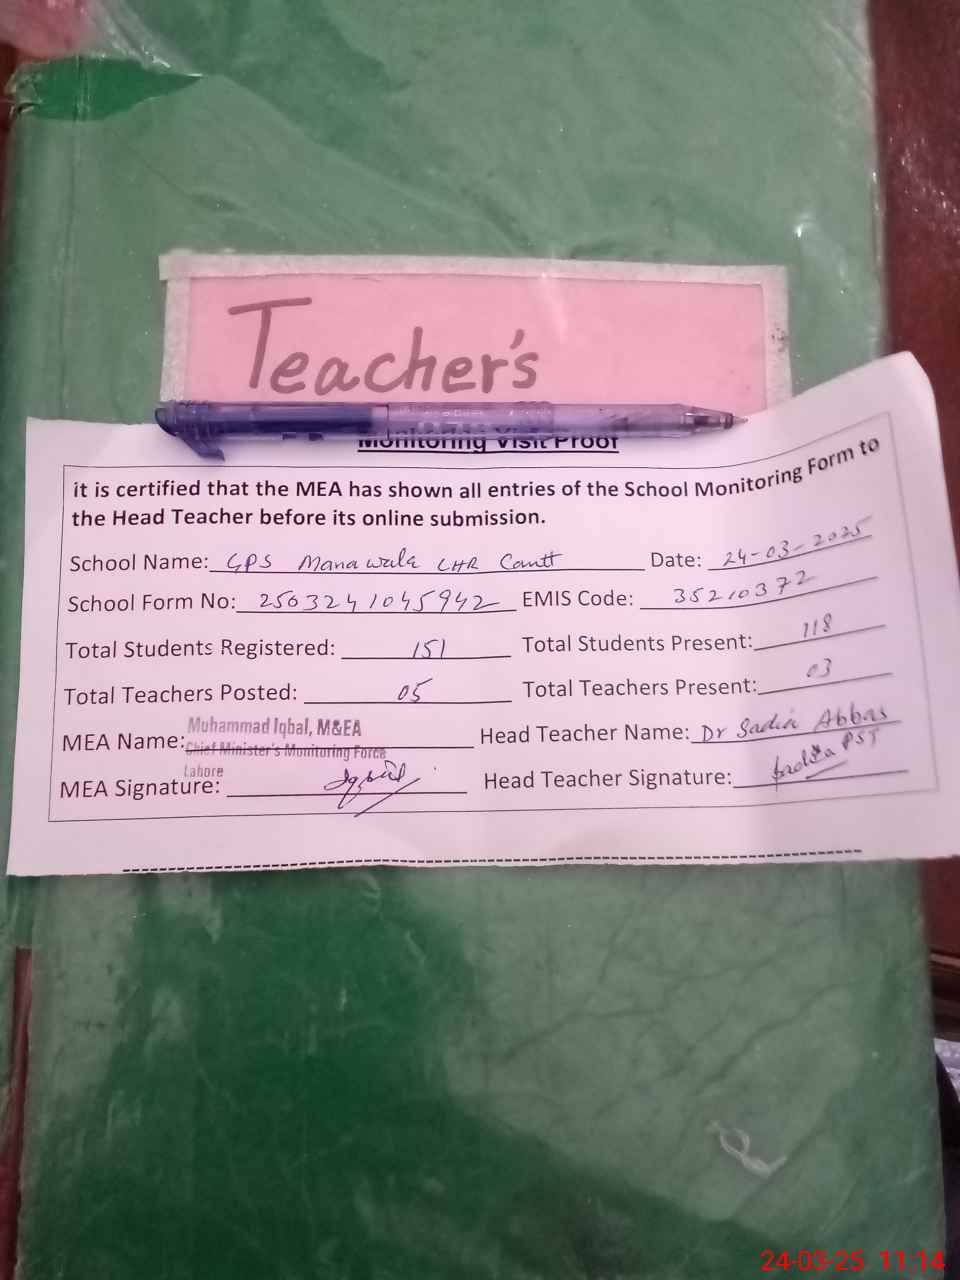 Teacher's
Monitoring Visit Proof
it is certified that the MEA has shown all entries of the School Monitoring Form to
the Head Teacher before its online submission.
School Name: GPS Manawala LHR Cantt Date: 24-03-2025
School Form No: 2503241045942 EMIS Code: 35210372
Total Students Registered: 151 Total Students Present: 118
Total Teachers Posted: 05 Total Teachers Present: 03
Muhammad Iqbal, M&EA
MEA Name: Chief Minister's Monitoring Force Head Teacher Name: Dr Sadia Abbas
Lahore
MEA Signature: Iqbal Head Teacher Signature: Sadia PST
24-03-25 11:14